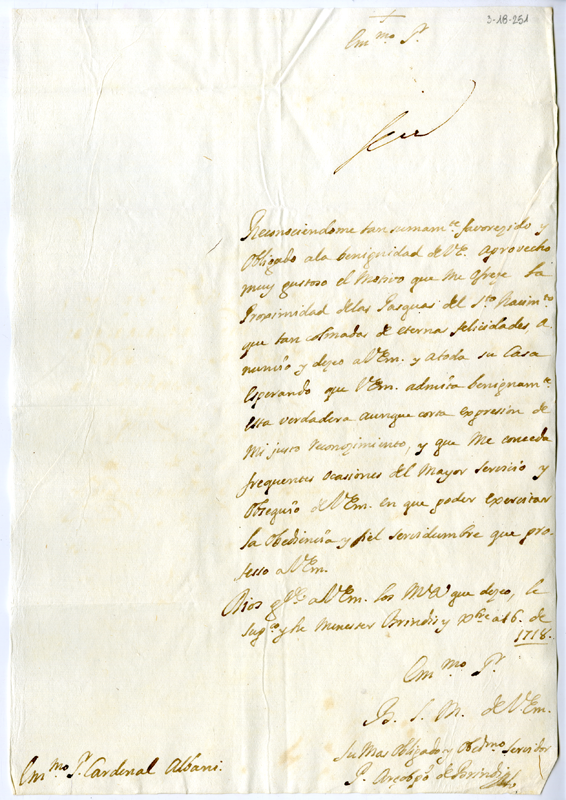 3-18-251
Em.mo S.r
Reconociendome tan sumam.te favorezido y
Obligado ala benignidad de V.E. aprovecho
muy gustoso el Motivo que Me ofreze la
Proximidad delas Pasquas del S.to Nacim.to
que tan colmadas de eternas felicidades, a-
nunzio y dezeo a V.Em. y atoda su Casa
Esperando que V.Em. admita benignam.te
esta verdadera aunque corta expresion de
Mi justo reconozimiento, y que Me conceda
frequentes ocasiones del Mayor Servicio y
Obsequio de V.Em. en que poder exercitar
la Obediencia y fiel servidumbre que pro-
fesso a V.Em.
Dios g.de a V.Em. los M.s a.s que dezeo, le
sup.co y he Menester Brindis y Xbre a 16. de
1718.
Em.mo S.r
B. L. M. de V.Em.
Su Mas Obligado y Obed.mo Servidor
P. Arçobpo de Brindis
Em.mo S.r Cardenal Albani.